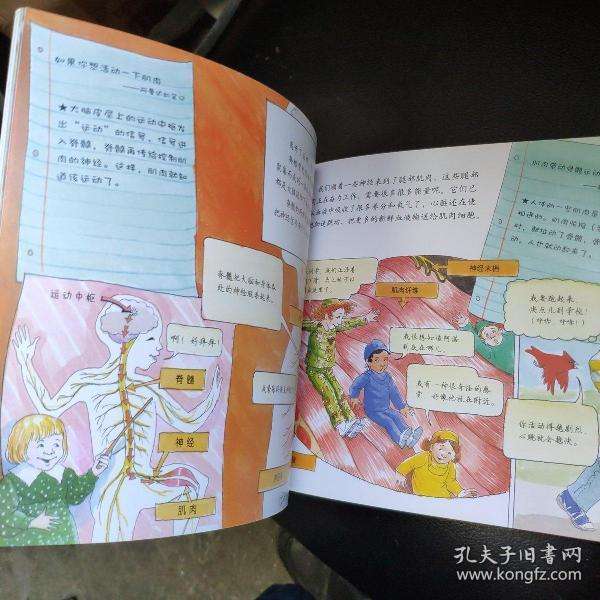 如果你想活动一下肌肉
★大脑皮层上的运动中枢发
出“运动”的信号，信号进
入脊髓，脊髓再传给控制肌
肉的神经。这样，肌肉就知
道该运动了。
脊髓把大脑和身体各
处的神经联系起来。
运动中枢
啊！好痒痒
脊髓
神经
肌肉
我们顺着一些神经来到了腿部肌肉，这些腿部
正在奋力工作，需要很多很多能量呢。它们已
血液中吸收了很多养分和氧气了，心脏还在使
加速跳动，把更多的新鲜血液输送给肌肉细胞。
神经末梢
肌肉纤维
我很想知道阿诺
到底在哪儿。
我有一种很奇怪的感
觉，好像他就在附近。
肌肉带动骨骼运动
★人体的一些肌肉是
相连的。肌肉收缩
时，就拉动了骨骼，
动，人也就动起来了。
我要跑起来，
快点儿到学校！
（呼哧，呼哧！）
你活动得越剧烈，
心跳就会越快。
孔夫子旧书网
www.kongfz.com